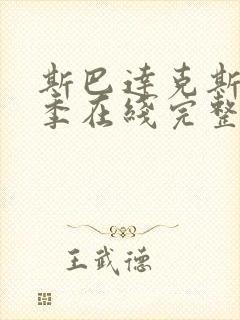 斯巴达克斯
季在线完整
王武德